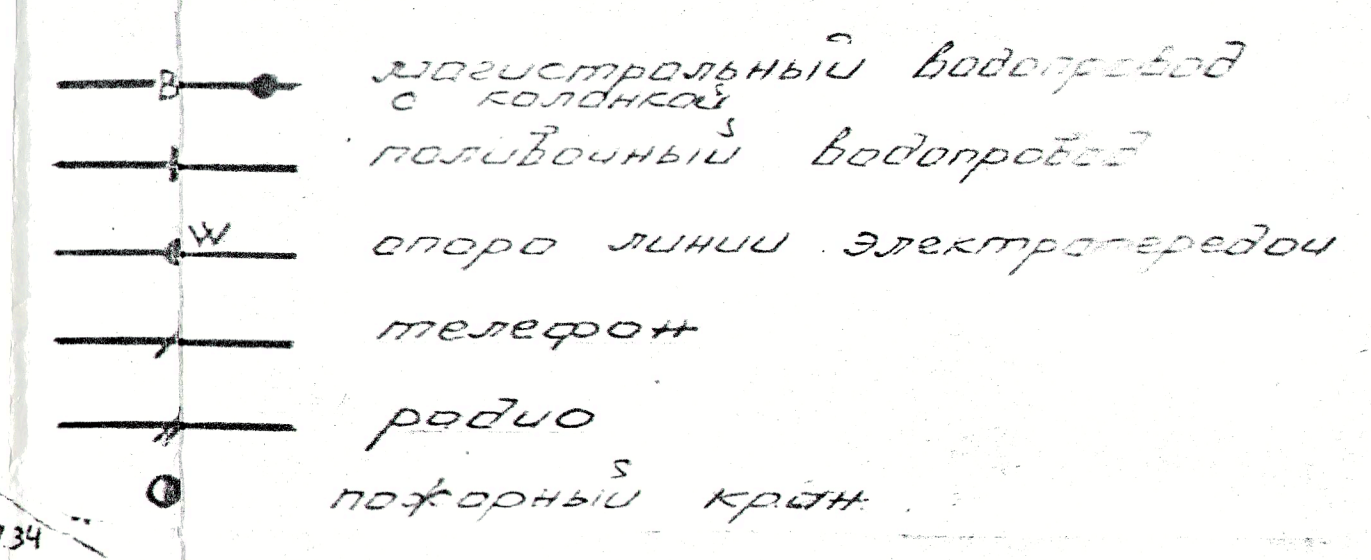 В магистральный водопровод
с колонкой
поливочный водопровод
W опора линии электропередач
телефон
радио
пожарный кран
134